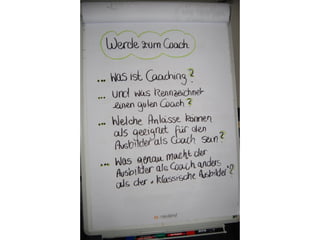 Werde zum Coach
... Was ist Coaching?
... und was kennzeichnet
einen guten Coach?
... Welche Anlässe können
als geeignet für den
Ausbilder als Coach sein?
... Was genau macht der
Ausbilder als Coach anders
als der "klassische Ausbilder"?